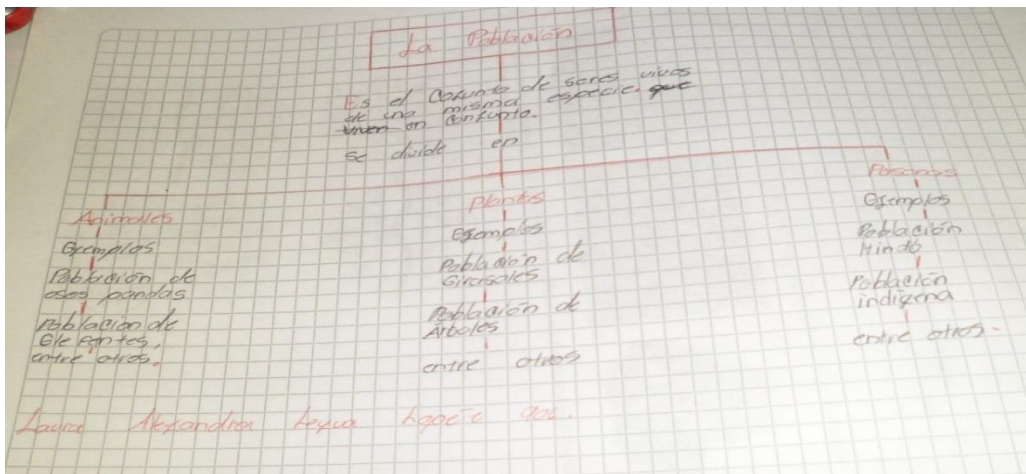 La Población
Es el Cojunto de seres vivos
de una misma especie. que
viven en conjunto.
se divide en
Animales
Ejemplos
Población de
osos pandas
Población de
Elefantes,
entre otros.
plantas
Ejemplos
Población de
Girasoles
Población de
Arboles
entre otros
Personas
Ejemplos
Población
Hindú
Población
indígena
entre otros.
Laura Alexandra Leyva